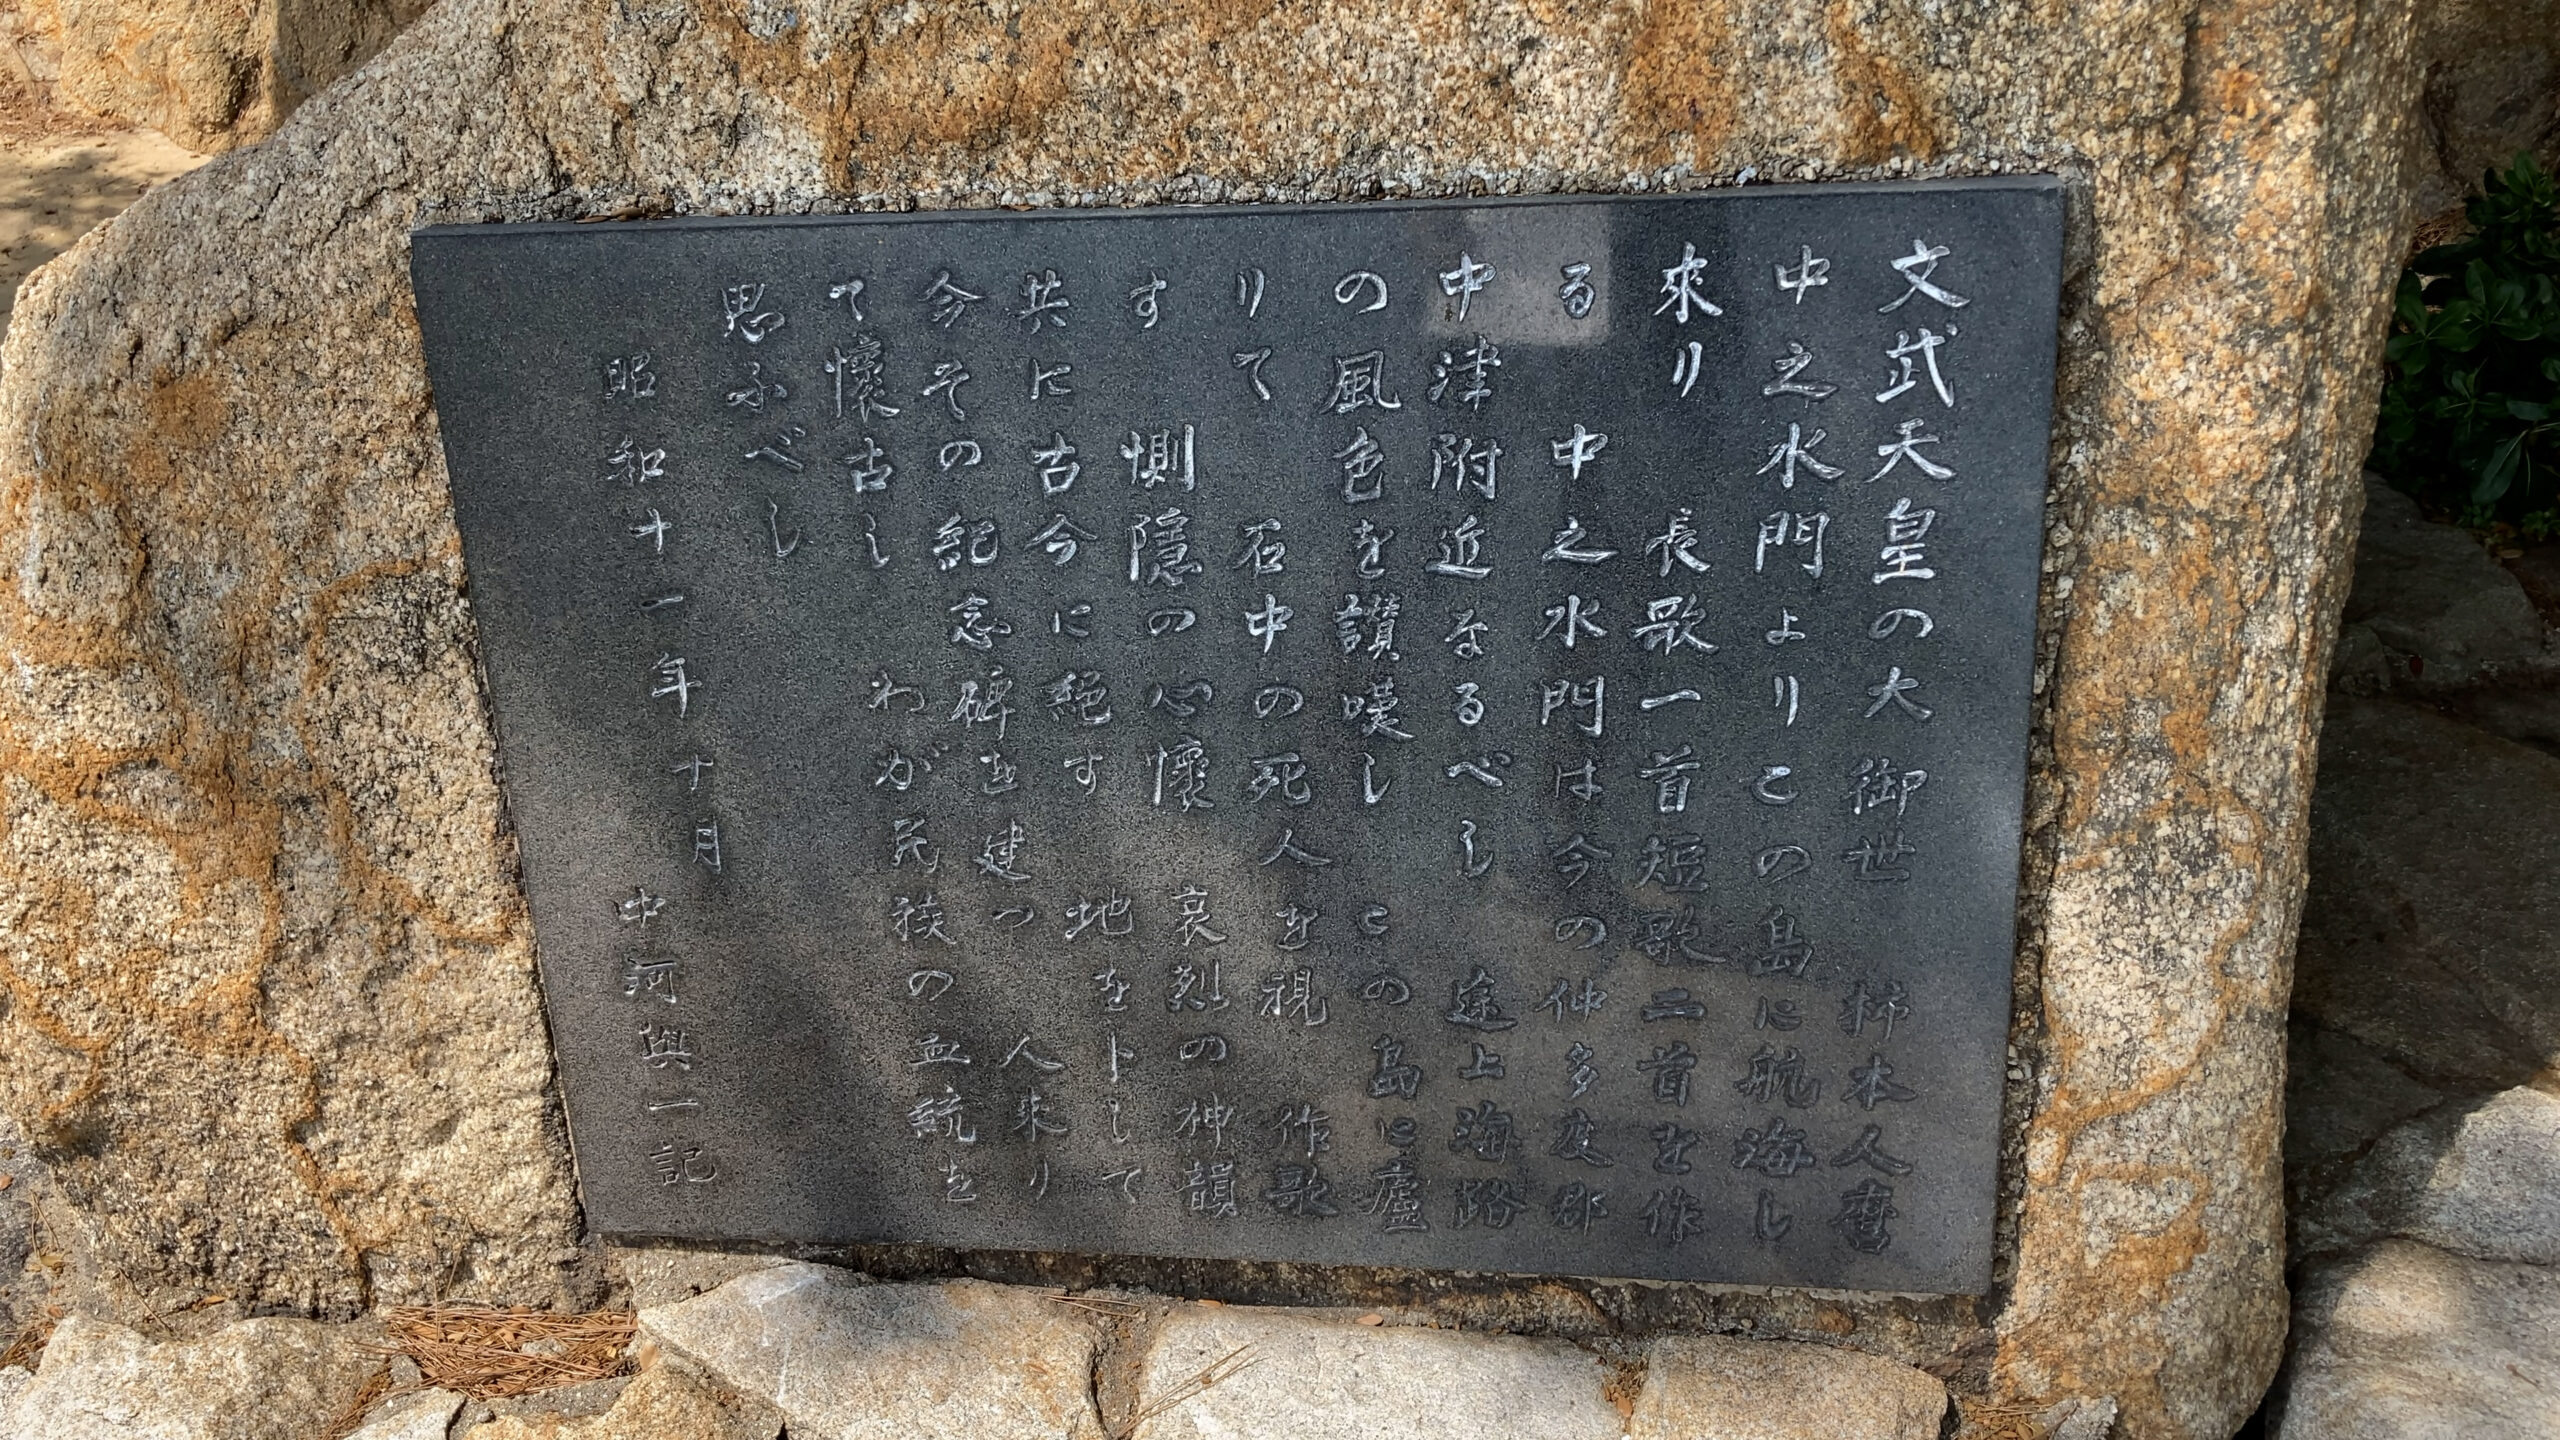 文武天皇の大御世　柿本人麿
中之水門よりこの島に航海し
來り　長歌一首短歌二首を作
る　中之水門は今の仲多度郡
中津附近なるべし　途上海路
の風色を讃嘆し　この島に廬
りて　石中の死人を視　作歌
す　惻隠の心懐　哀烈の神韻
共に古今に絶す　地を卜して
今その記念碑を建つ　人来り
て懐古し　わが民族の血統を
思ふべし
昭和十一年十月
中河與一記